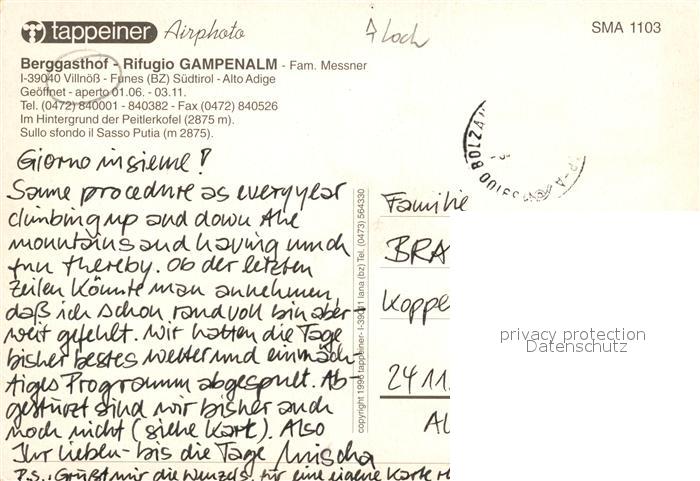 tappeiner Airphoto
SMA 1103
Berggasthof - Rifugio GAMPENALM - Fam. Messner
I-39040 Villnöß - Funes (BZ) Südtirol - Alto Adige
Geöffnet - aperto 01.06. - 03.11.
Tel. (0472) 840001 - 840382 - Fax (0472) 840526
Im Hintergrund der Peitlerkofel (2875 m).
Sullo sfondo il Sasso Putia (m 2875).
Giorno insieme!
Same procedure as every year
climbing up and down the
mountains and having much
fun thereby. Ob der letzten
Zeilen könnte man annehmen,
daß ich schon randvoll bin aber
weit gefehlt. Wir hatten die Tage
bisher bestes Wetter und ein mäch-
tiges Programm abgespult. Ab-
gestürzt sind wir bisher auch
noch nicht (siehe Karte). Also
Ihr Lieben - bis die Tage Mischa
P.S.: Grüßt mir die Wenzels, für eine eigene Karte
copyright 1996 tappeiner- I-39011 lana (bz) Tel. (0473) 564330
Familie
BRA
Koppe
24 11.
privacy protection
Datenschutz